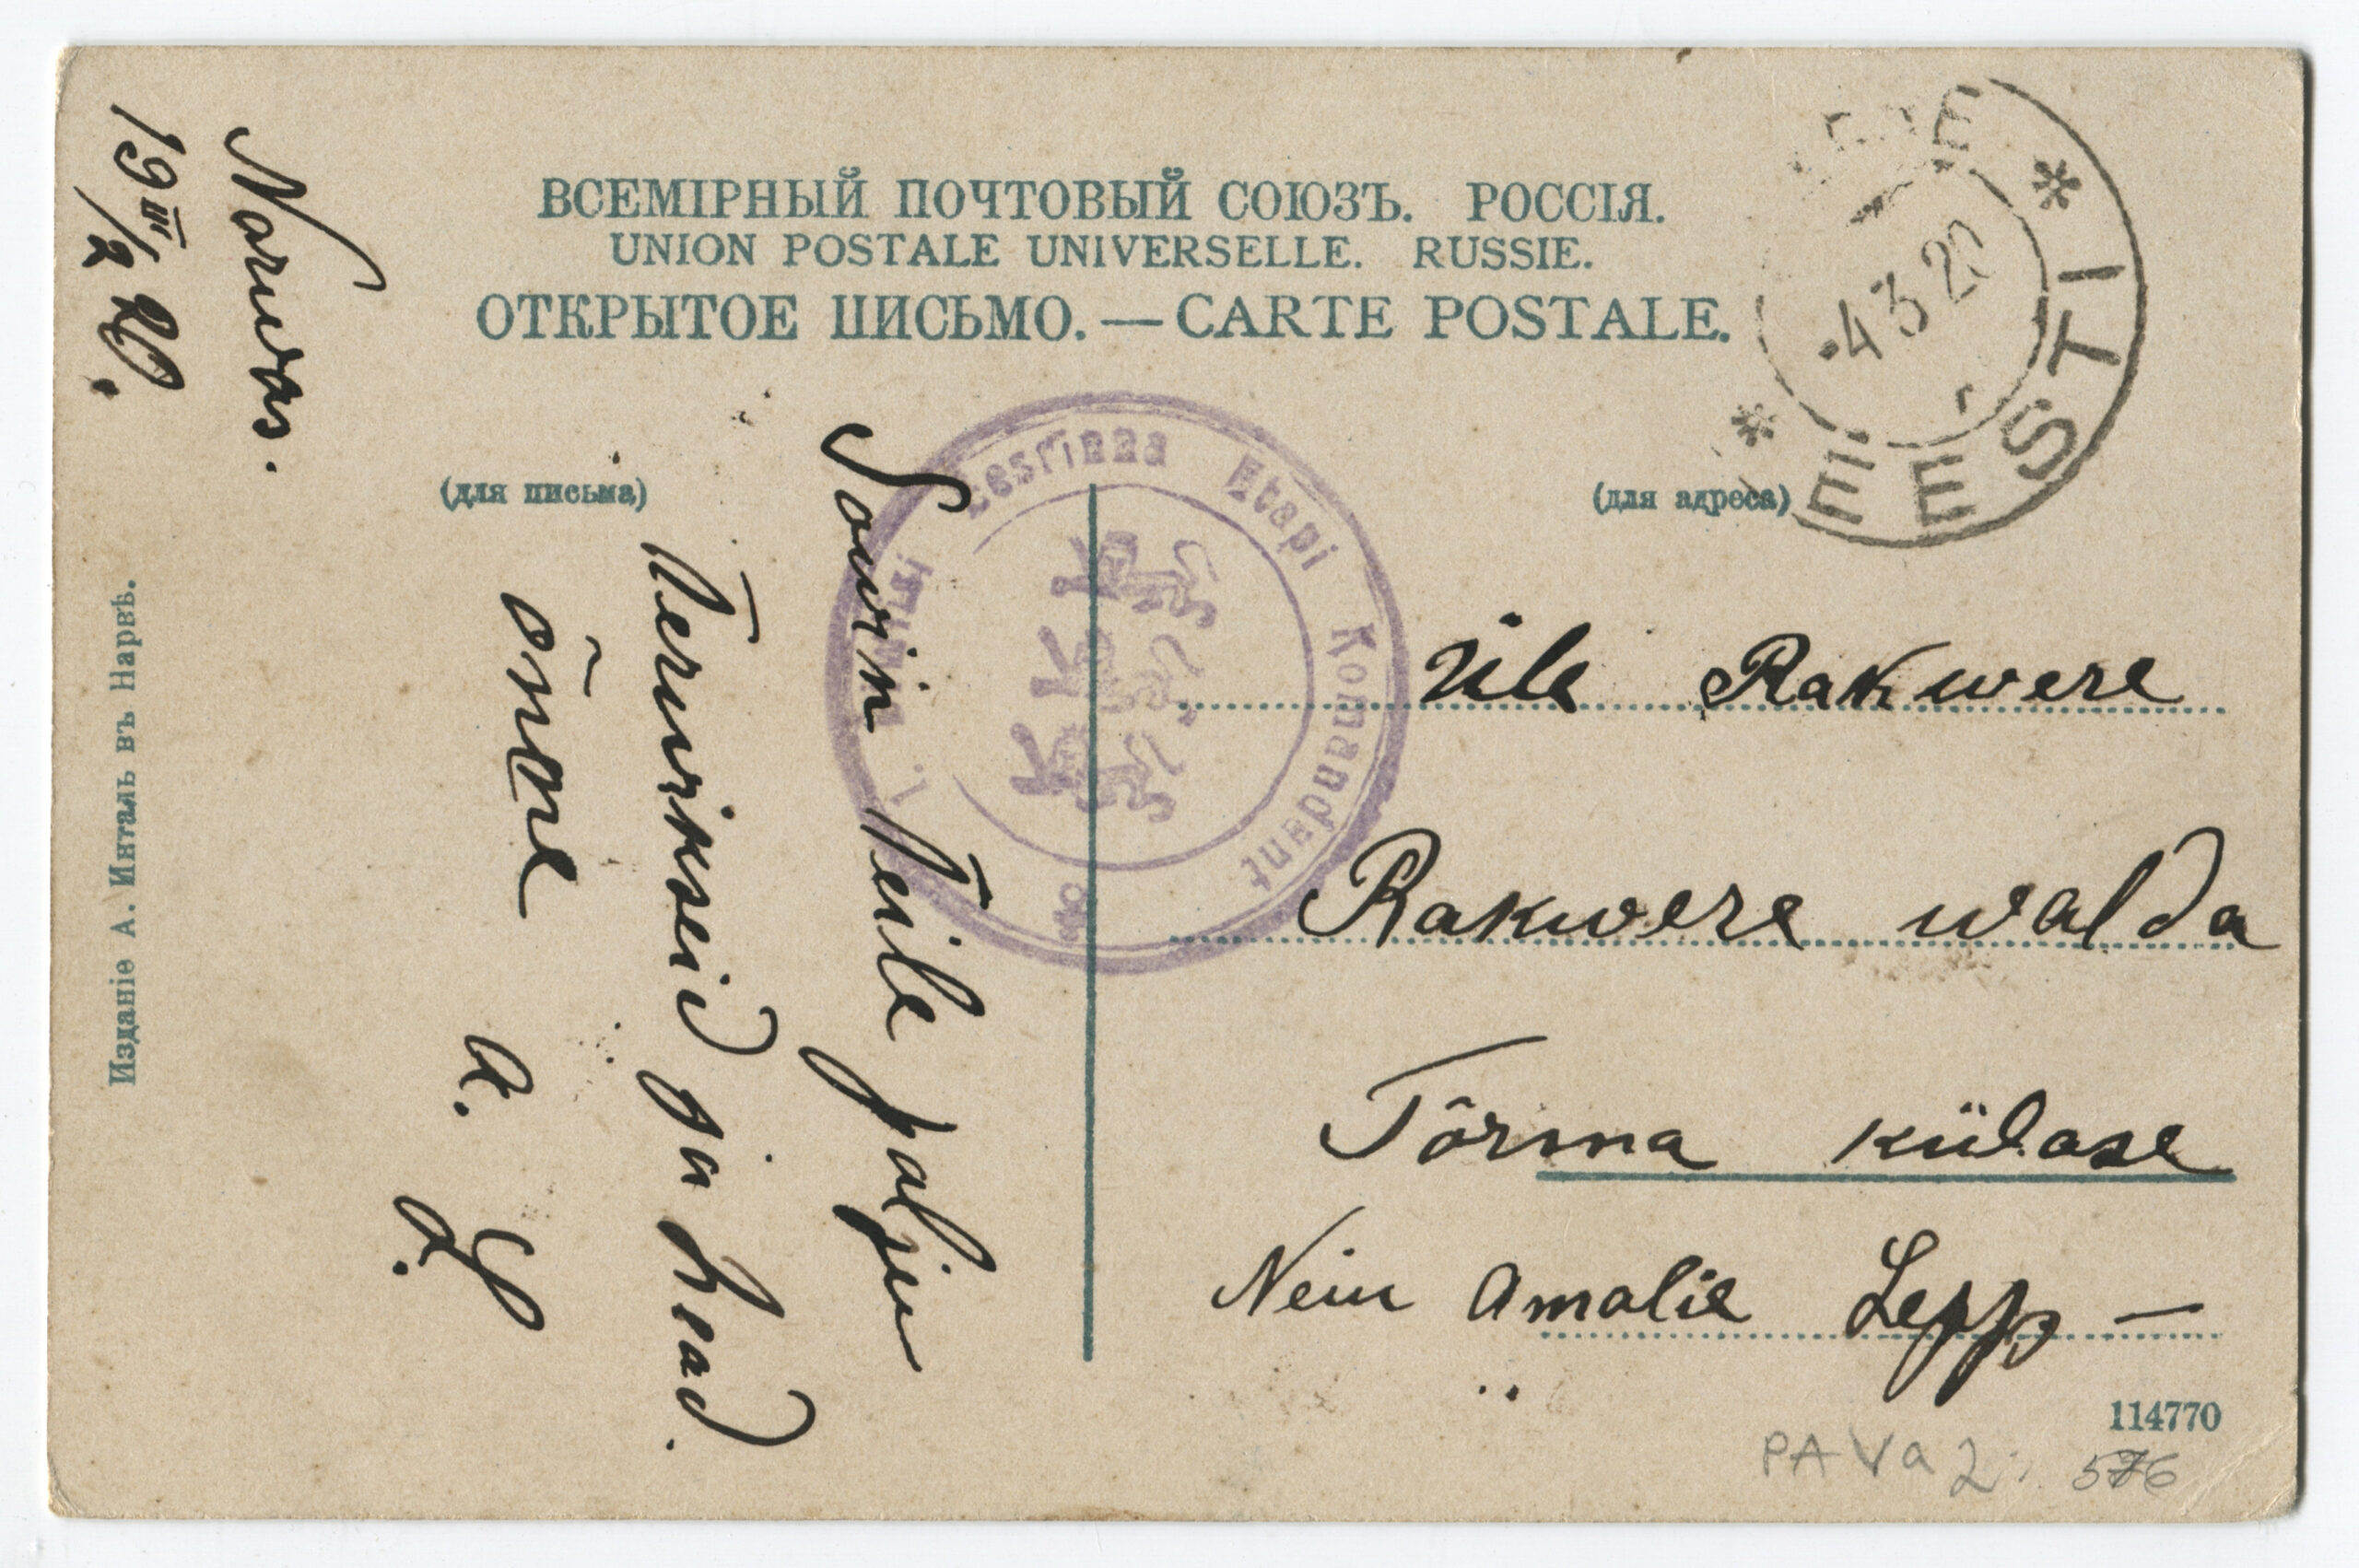 ВСЕМІРНЫЙ ПОЧТОВЫЙ СОЮЗЪ. РОССІЯ.
UNION POSTALE UNIVERSELLE. RUSSIE.
ОТКРЫТОЕ ПИСЬМО. — CARTE POSTALE.
(для письма)
(для адреса)
Narwas.
19 III/2 20.
Sowin Teile palju
Terwiseid ja head
õnne
A. L.
Üle Rakwere
Rakwere walda
Tõrma külase
Neiu Amalie Lepp —
EESTI
4 3 20
Eesrinna Etapi Komandant
Изданіе А. Инталь въ Нарвѣ.
114770
PAVa 2: 576